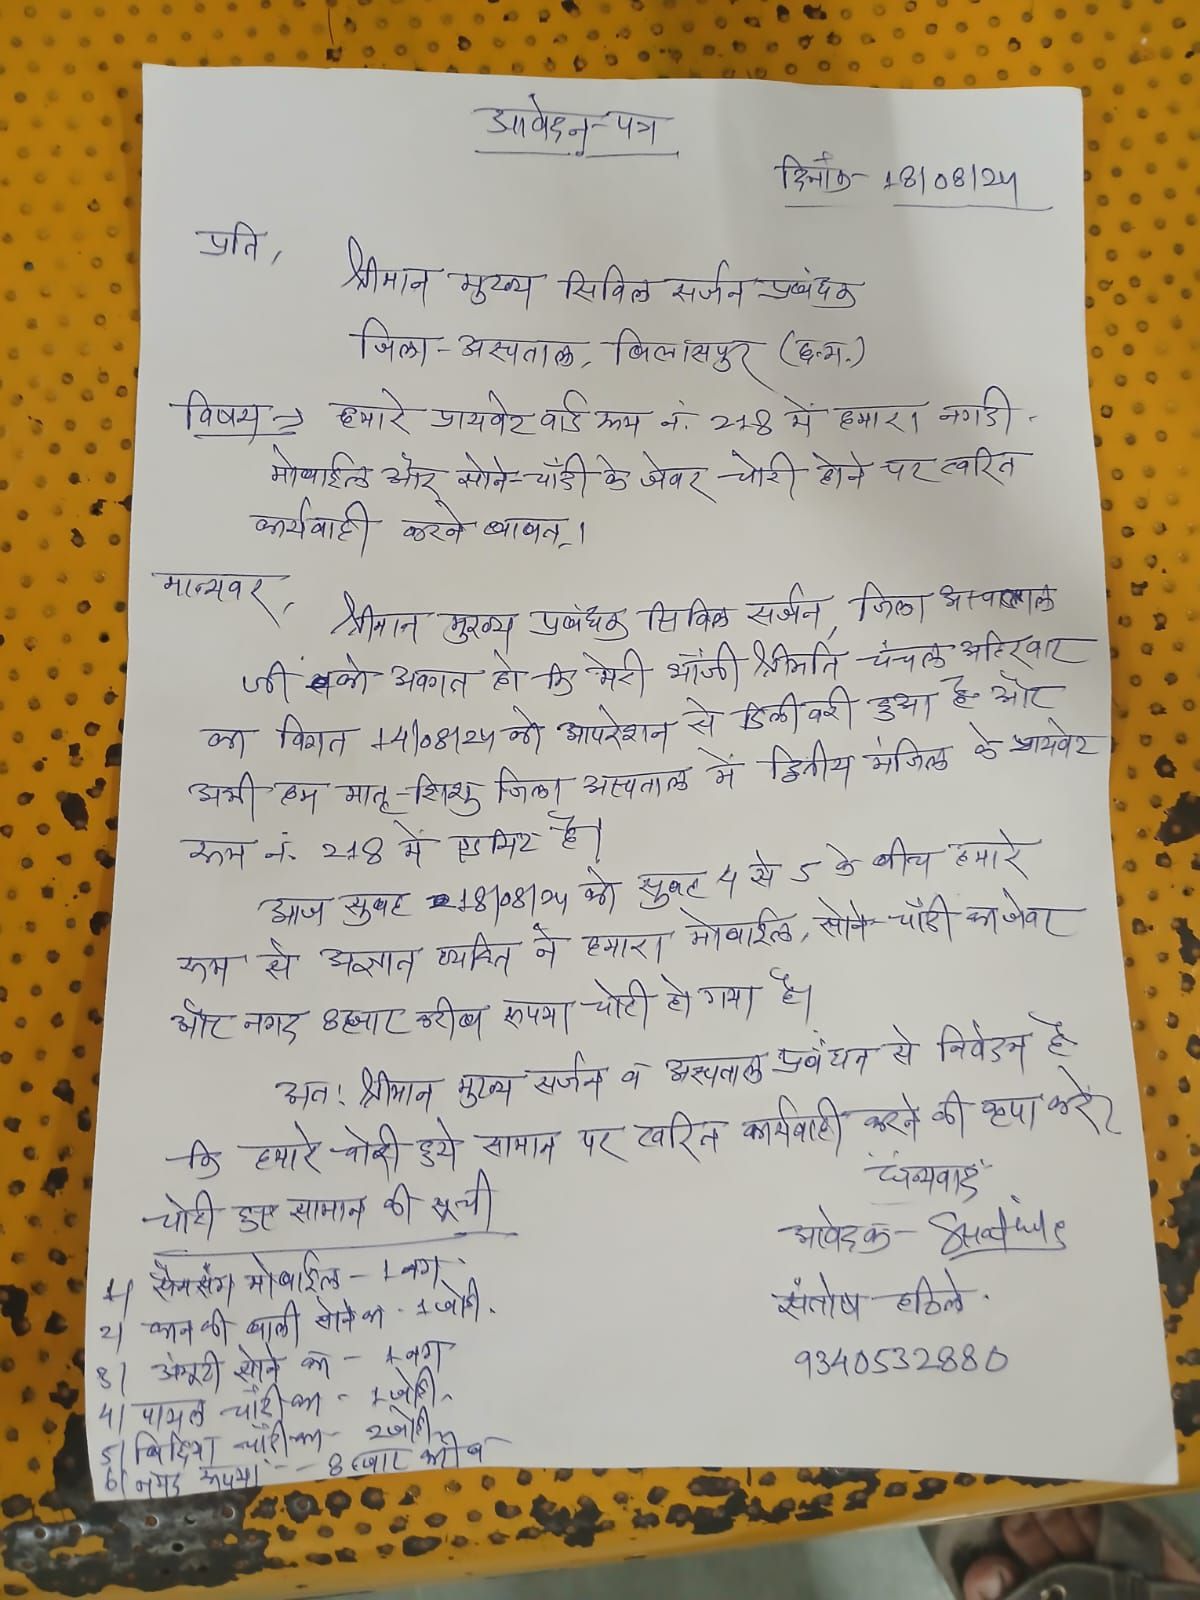 आवेदन-पत्र
दिनाँक- 18/08/24
प्रति,
श्रीमान मुख्य सिविल सर्जन प्रबंधक
जिला-अस्पताल, बिलासपुर (छ.ग.)
विषय => हमारे प्रायवेट वार्ड रूम नं. 218 में हमारा नगदी
मोबाईल और सोने-चाँदी के जेवर चोरी होने पर त्वरित
कार्यवाही करने बाबत्।
मान्यवर,
श्रीमान मुख्य प्रबंधक सिविल सर्जन, जिला अस्पताल
जी को अवगत हो कि मेरी भाँजी श्रीमति चंचल अहिरवार
का विगत 14/08/24 को आपरेशन से डिलीवरी हुआ है और
अभी हम मातृ-शिशु जिला अस्पताल में द्वितीय मंजिल के प्रायवेट
रूम नं. 218 में एडमिट है।
आज सुबह 18/08/24 को सुबह 4 से 5 के बीच हमारे
रूम से अज्ञात व्यक्ति ने हमारा मोबाईल, सोने-चाँदी का जेवर
और नगद 8 हजार करीब रूपया चोरी हो गया है।
अतः श्रीमान मुख्य सर्जन व अस्पताल प्रबंधन से निवेदन है
कि हमारे चोरी हुये सामान पर त्वरित कार्यवाही करने की कृपा करें।
धन्यवाद
चोरी हुए सामान की सूची
आवेदक-
1) सैमसंग मोबाईल - 1 नग
2) कान की बाली सोने का - 1 जोड़ी.
संतोष हठिले
3) अंगूठी सोने का - 1 नग
9340532880
4) पायल चाँदी का - 1 जोड़ी
5) बिछिया चाँदी का - 2 जोड़ी
6) नगद रूपया -- 8 हजार करीब